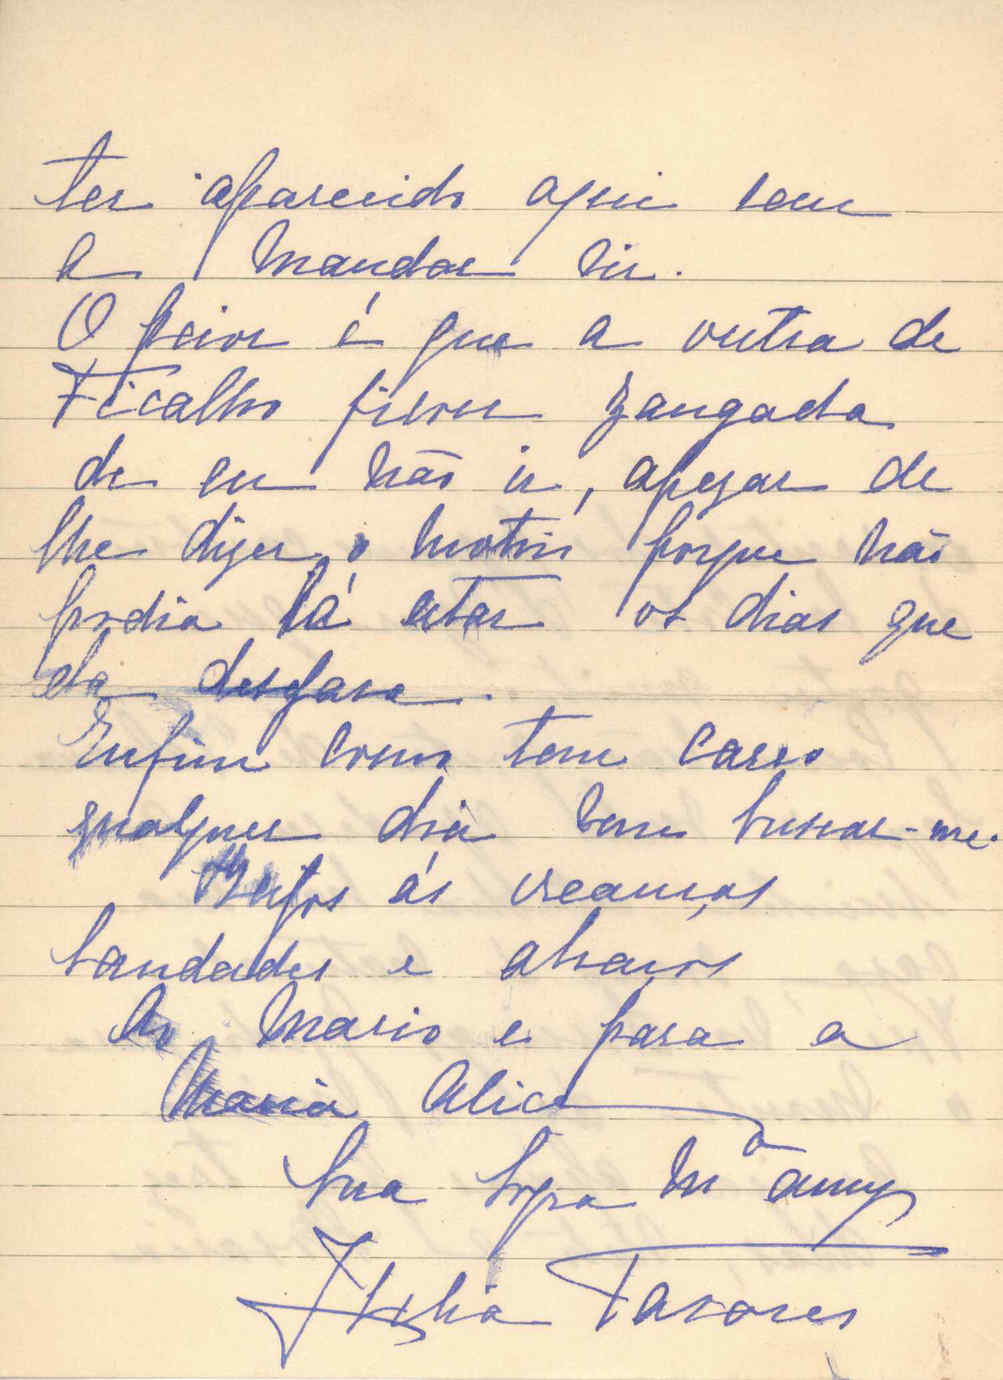 ter aparecido aqui sem
a mandar vir.
O peior é que a outra de
Ficalho ficou zangada
de eu não ir, apezar de
lhe dizer o motivo porque não
podia lá estar os dias que
ela desejava.
Enfim como tem carro
qualquer dia vem buscar-me.
Beijos ás creanças
saudades e abraços
Ao Mario e para a
Maria Alice
Sua Sogra Mᵗᵒ amiga
Tavares